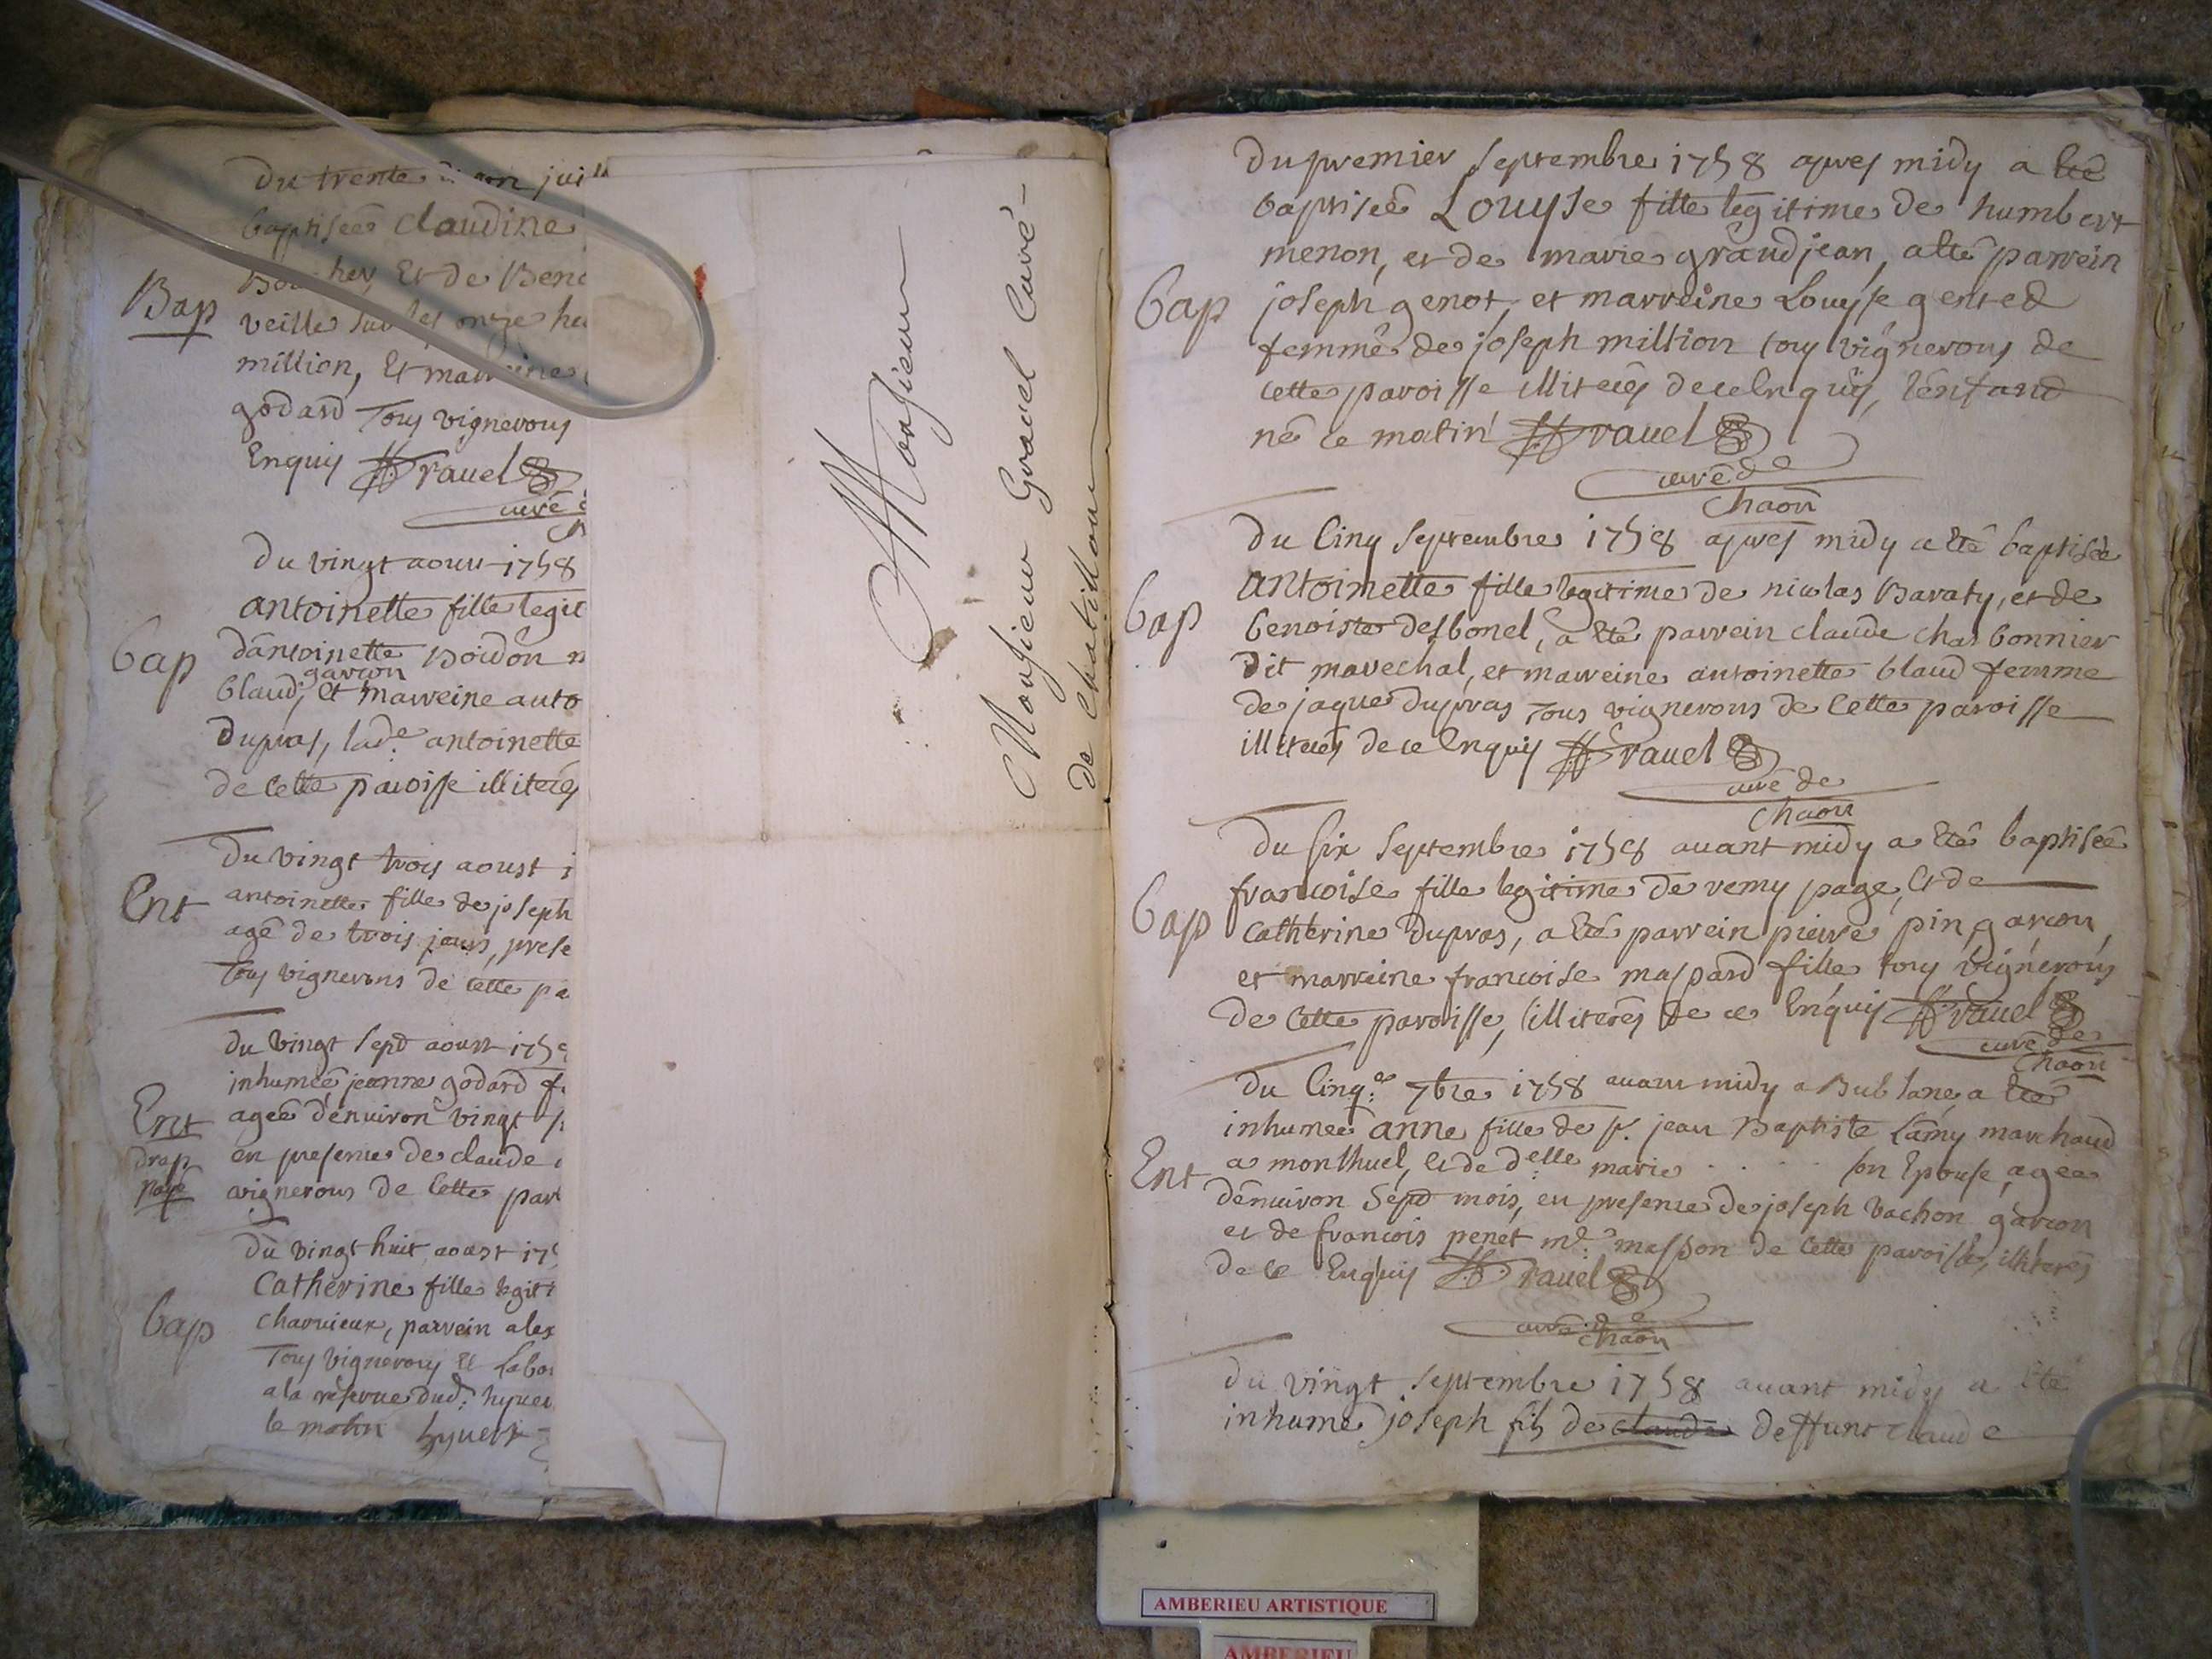 Du trente juill
baptiseé Claudine
Et de Beno
Bap
veille sur les onze heu
million, Et marreine
godard Tous vignerons
Enquis Gravel
curé
Du vingt aoust 1758
antoinette fille legit
Bap
d'antoinette
garcon
blaud, et marreine anto
Dupras, lad.e antoinette
de cette paroisse illiterés
Du vingt trois aoust 1
Ent
antoinette fille de joseph
agé de trois jours, prese
Tous vignerons de cette pa
Du vingt sept aoust 175
inhumeé jeanne godard f
Ent
ageé d'environ vingt
drap
en presence de claude
payé
vignerons de cette par
Du vingt huit aoust 175
Catherine fille legit
Bap
charvieux, parrein alex
Tous vignerons Et Labo
a la reserve dud: hyver
le matin hyvert
Monsieur
Monsieur Gravel Curé -
de Chatillon
Du premier septembre 1758 apres midy a eté
baptiseé Louyse fille legitime de humbert
menon, et de marie grandjean, a eté parrein
Bap
joseph genot, et marreine Louyse
femme de joseph million tous vignerons de
cette paroisse illiterés de ce Enquis, l'enfand
né ce matin Gravel
curé de
chaon
Du Cinq septembre 1758 apres midy a eté baptiseé
antoinette fille legitime de nicolas Baraty, et de
Bap
benoiste desbonel, a eté parrein claude charbonnier
dit marechal, et marreine antoinette blaud femme
de jaque dupras Tous vignerons de Cette paroisse
illiterés de ce Enquis Gravel
curé de
chaon
Du six septembre 1758 avant midy a eté baptiseé
francoise fille legitime de remy page, et de
Bap
catherine dupras, a eté parrein pierre pin, garcon,
et marreine francoise maspard fille tous vignerons
de Cette paroisse, illiterés de ce Enquis Gravel
curé de
chaon
Du Cinq.e 7bre 1758 avant midy a Bublane, a eté
inhumeé anne fille de s.r jean Baptiste Lamy marchand
Ent
a monthuel, et de d.elle marie . . . . son Epouse, ageé
d'environ sept mois, en presence de joseph vachon garcon
et de francois penet m.e masson de Cette paroisse, illiterés
de ce Enquis Gravel
curé de
chaon
Du vingt septembre 1758 avant midy a eté
inhumé joseph fils de claude deffunt claude
AMBERIEU ARTISTIQUE
AMBERIEU